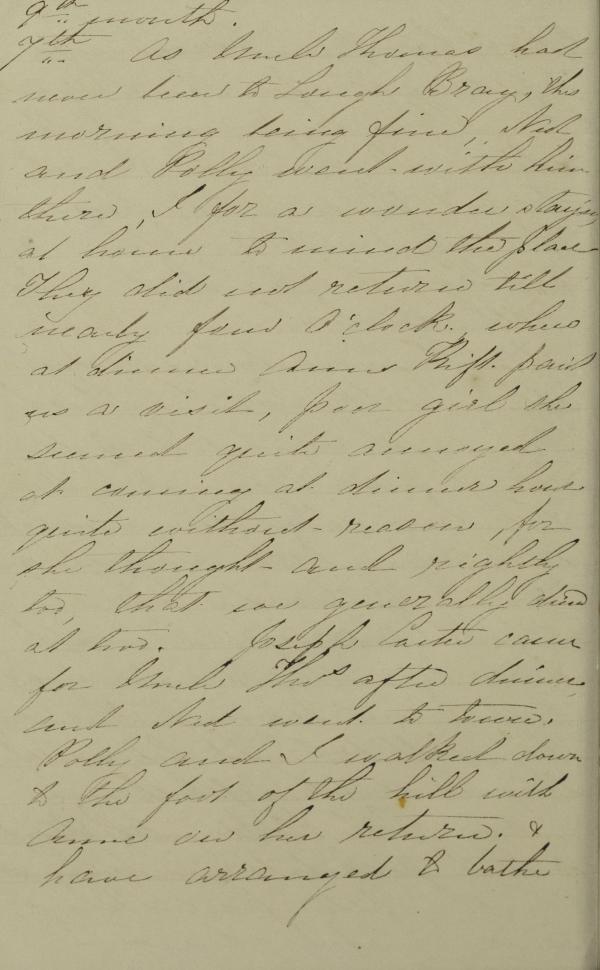 9th month.
7th As Uncle Thomas had
never been to Lough Bray, this
morning being fine, Ned
and Polly went with him
there, I for a wonder staying
at home to mind the place
They did not return till
nearly four O'clock. when
at dinner Anne Thrift paid
us a visit, poor girl she
seemed quite annoyed
at coming at dinner hour
quite without reason, for
she thought and rightly
too, that we generally dined
at two. Joseph Carter came
for Uncle Thos after dinner,
and Ned went to town.
Polly and I walked down
to the foot of the hill with
Anne on her return. &
have arranged to bathe